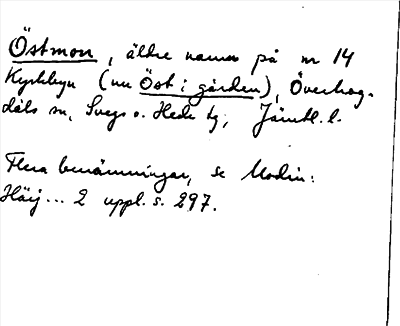 Östmon, äldre namn på nr 14
Kyrkbyn (nu Öst i gården), Överhog-
dals sn, Svegs o. Hede tg, Jämtl. l.
Flera benämningar, se Modin:
Härj... 2 uppl. s. 297.